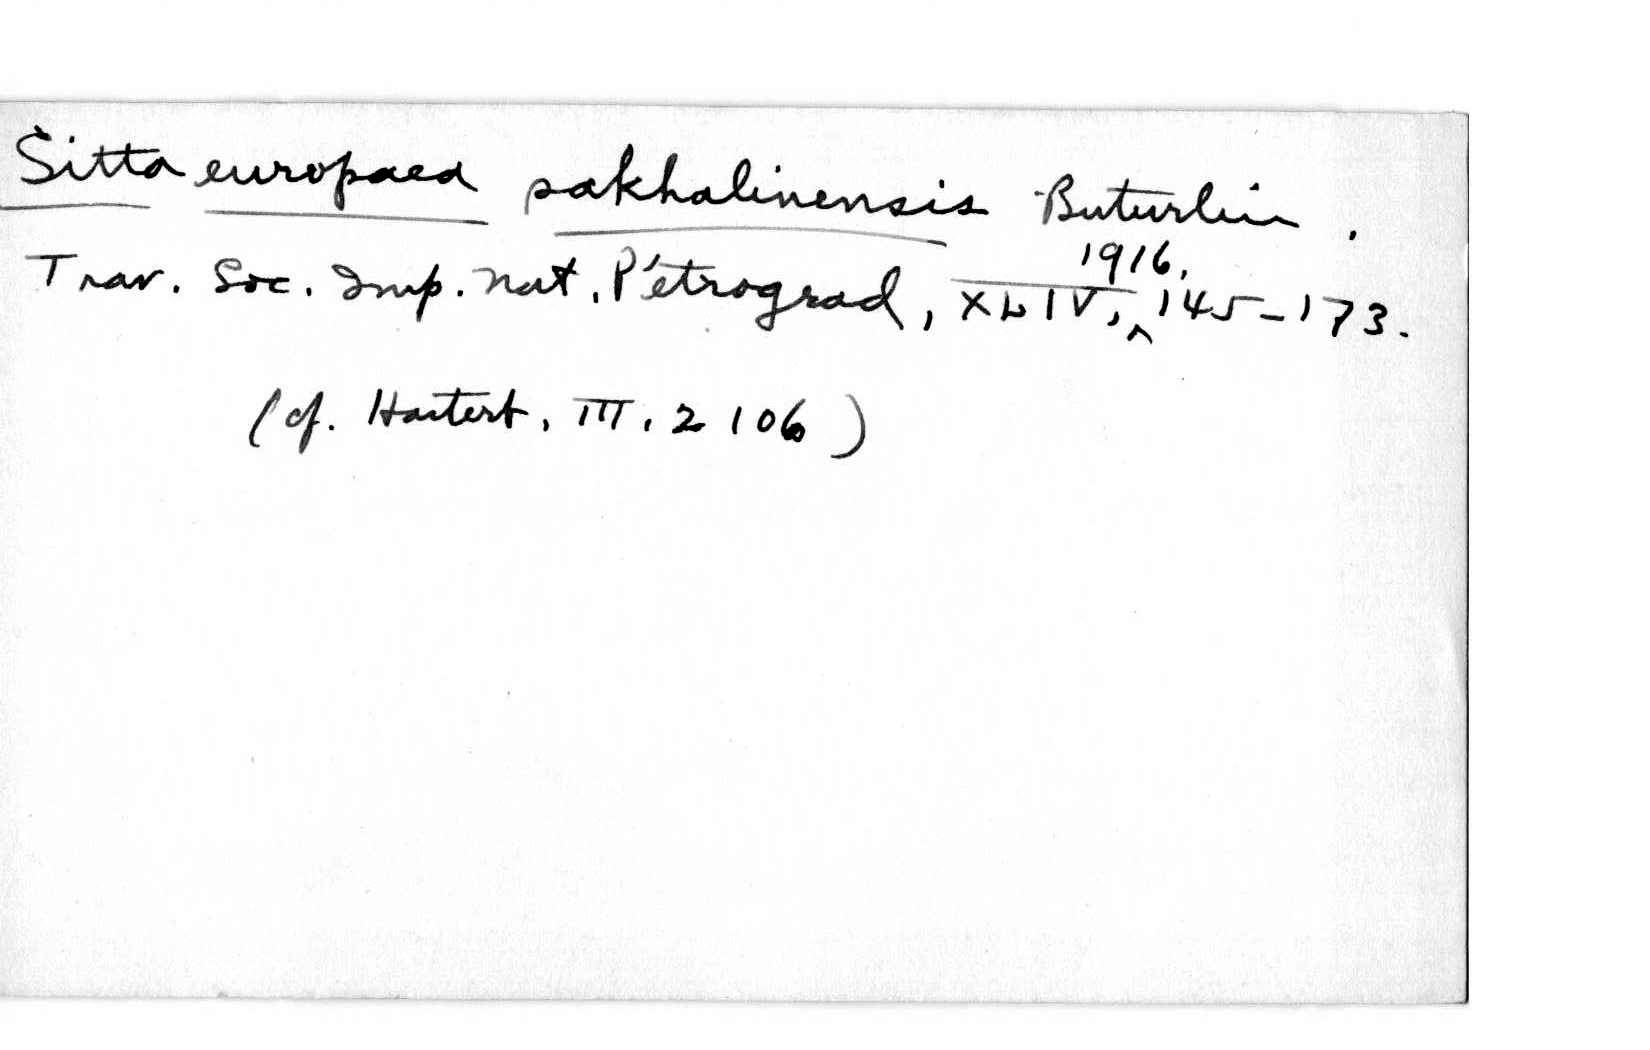 Sitta europaea sakhalinensis Buturlin.
Trav. Soc. Imp. Nat. Pétrograd, XLIV, 1916, 145-173.
(cf. Hartert, III. 2106)